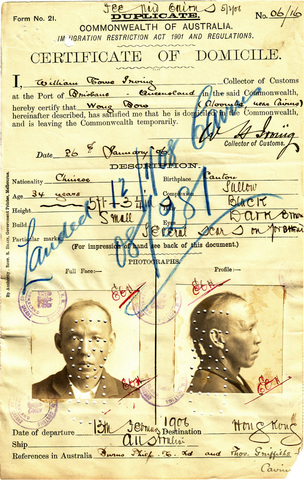 See New Cairns
Form No. 21. DUPLICATE. No. 06/16
COMMONWEALTH OF AUSTRALIA.
IMMIGRATION RESTRICTION ACT 1901 AND REGULATIONS.
CERTIFICATE OF DOMICILE.
I, William Irving Collector of Customs
at the Port of Brisbane - Queensland in the said Commonwealth,
hereby certify that Wong
hereinafter described, has satisfied me that he is domiciled in the Commonwealth
and is leaving the Commonwealth temporarily.
W Irving
Collector of Customs.
Date 26th January 06
DESCRIPTION.
Nationality Chinese Birthplace Canton
Age 34 years Complexion Sallow
Height 5ft Hair Black
Build Small Eyes Dark Brown
Particular marks Several scars on forehead
(For impression of hand see back of this document.)
Landed 12 1908 Cairns
08/287
PHOTOGRAPHS.
Full Face:— Profile:—
Date of departure 13th 1906 Destination Hong Kong
Ship Australian
References in Australia Burns Philp & Co Ld and Thos. Griffiths